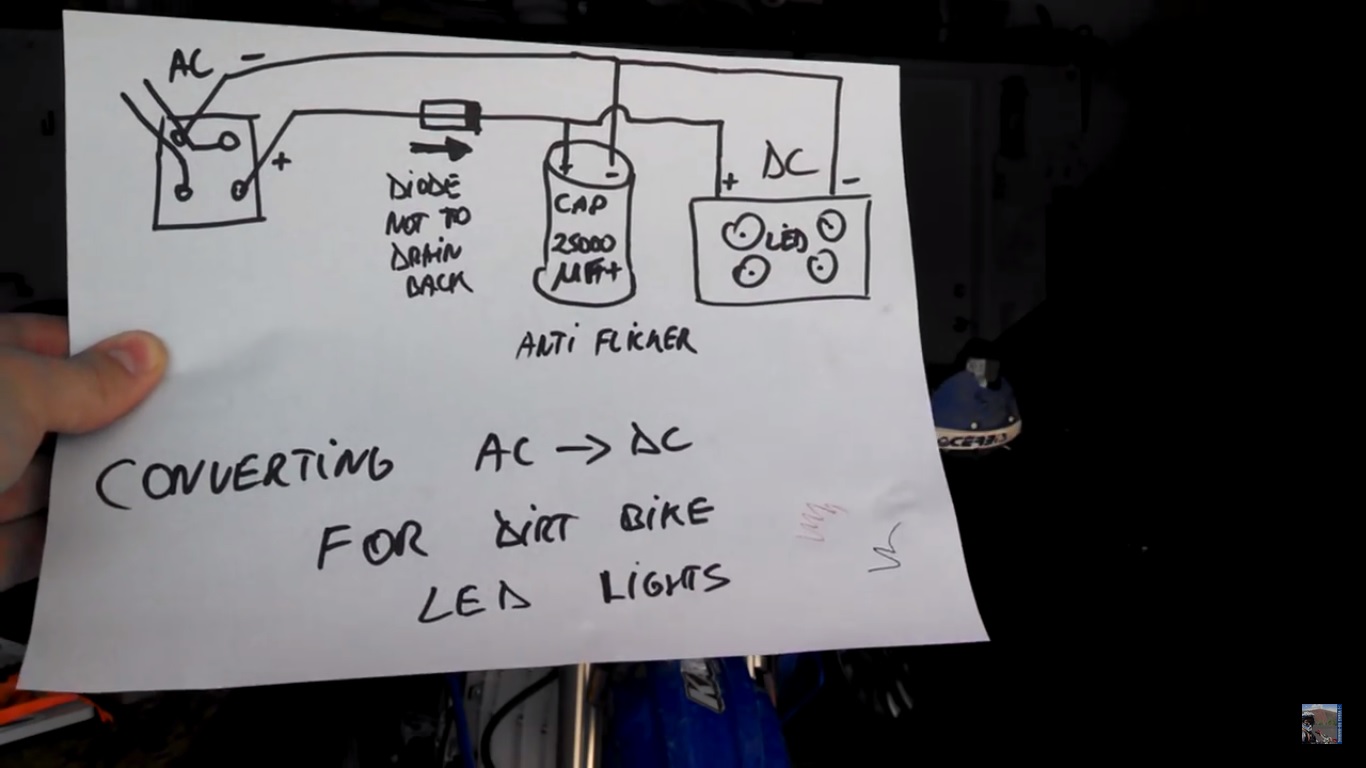 AC -
+
DIODE
NOT TO
DRAIN
BACK
+ -
CAP
25000
MFr+
ANTI FLICKER
DC
+ -
LED
CONVERTING AC → DC
FOR DIRT BIKE
LED LIGHTS
ACERBIS